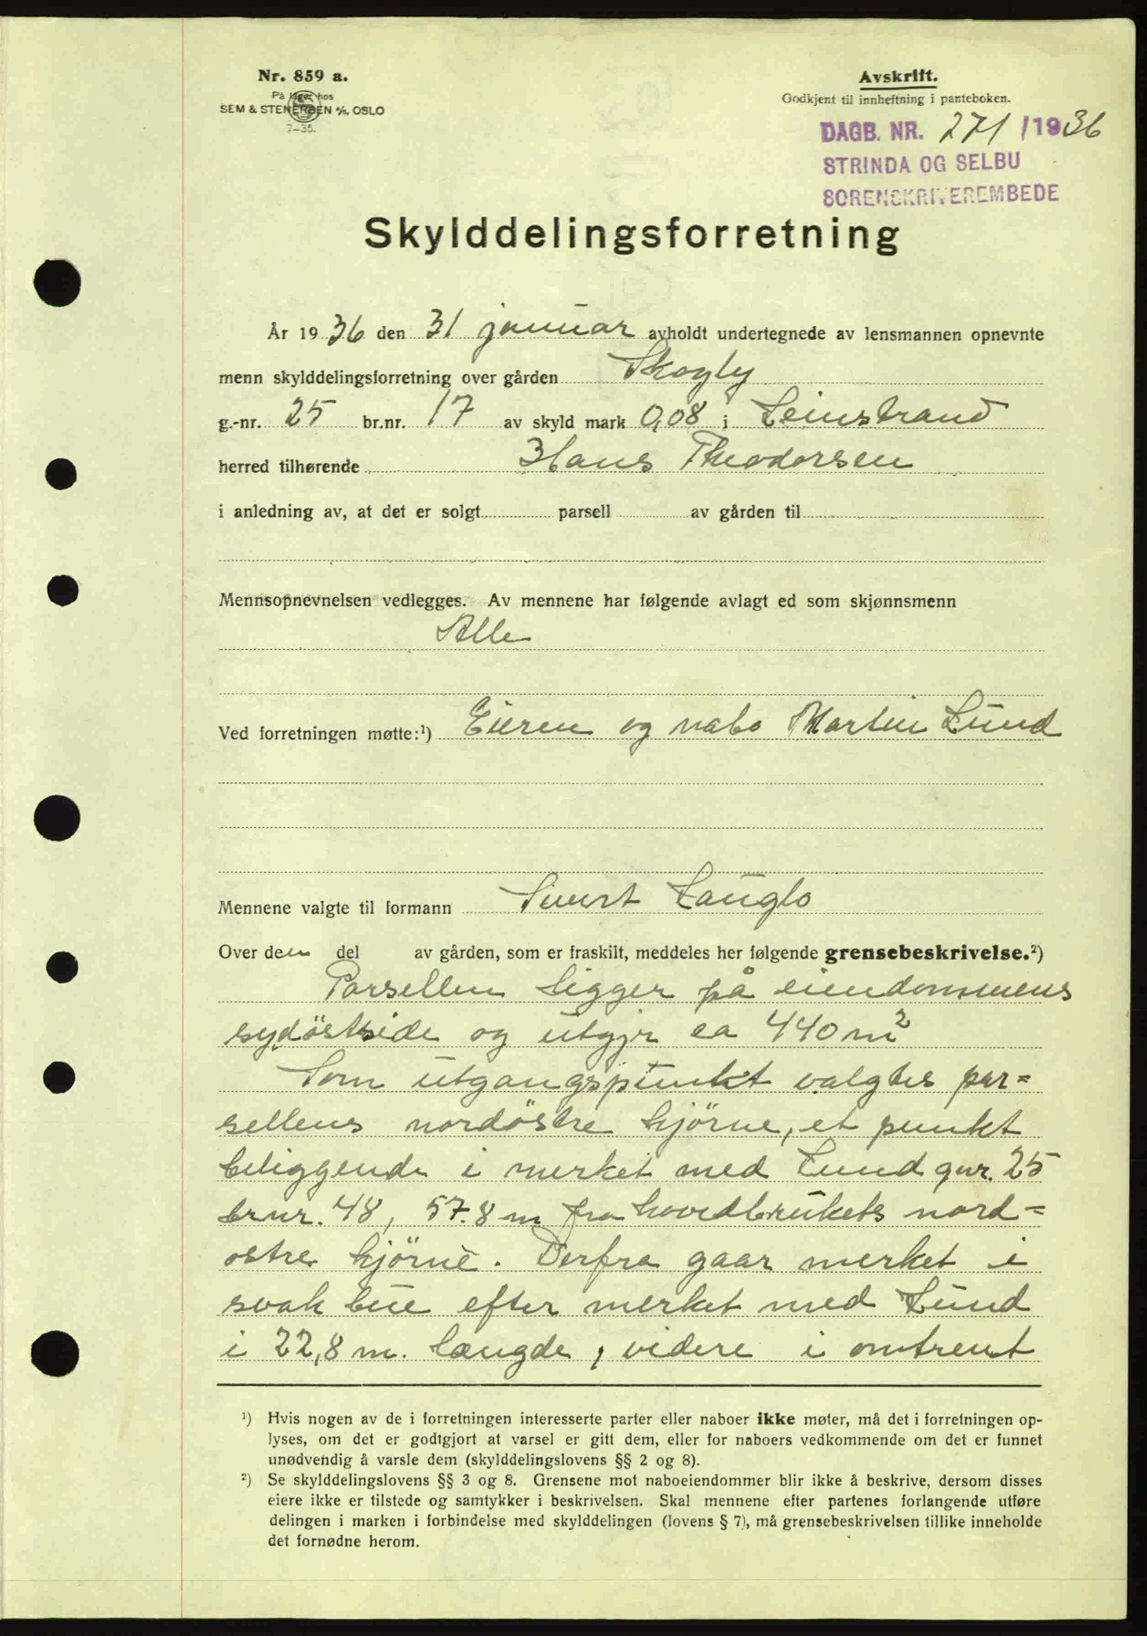 Nr. 859 a.
På lager hos
SEM & STENERSEN A/S, OSLO
7-35.
Avskrift.
Godkjent til innheftning i panteboken.
DAGB. NR. 271 /1936
STRINDA OG SELBU
SORENSKRIVEREMBEDE
Skylddelingsforretning
År 1936 den 31 januar avholdt undertegnede av lensmannen opnevnte
menn skylddelingsforretning over gården Skogly
g.-nr. 25 br.nr. 17 av skyld mark 0,08 i Leinstrand
herred tilhørende Hans Theodorsen
i anledning av, at det er solgt parsell av gården til
Mennsopnevnelsen vedlegges. Av mennene har følgende avlagt ed som skjønnsmenn
Alle
Ved forretningen møtte:¹) Eieren og nabo Martin Lund
Mennene valgte til formann Sivert Lauglo
Over den del av gården, som er fraskilt, meddeles her følgende grensebeskrivelse.²)
Parsellen ligger på eiendommens
sydöstside og utgjr ca 440 m²
Som utgangspunkt valgtes par=
sellens nordöstre hjörne, et punkt
beliggende i merket med Lund gnr. 25
brnr. 48, 57.8 m fra hovedbrukets nord=
ostre hjörne. Derfra gaar merket i
svak bue efter merket med Lund
i 22,8 m. længde, videre i omtrent
¹) Hvis nogen av de i forretningen interesserte parter eller naboer ikke møter, må det i forretningen op-
lyses, om det er godtgjort at varsel er gitt dem, eller for naboers vedkommende om det er funnet
unødvendig å varsle dem (skylddelingslovens §§ 2 og 8).
²) Se skylddelingslovens §§ 3 og 8. Grensene mot naboeiendommer blir ikke å beskrive, dersom disses
eiere ikke er tilstede og samtykker i beskrivelsen. Skal mennene efter partenes forlangende utføre
delingen i marken i forbindelse med skylddelingen (lovens § 7), må grensebeskrivelsen tillike inneholde
det fornødne herom.